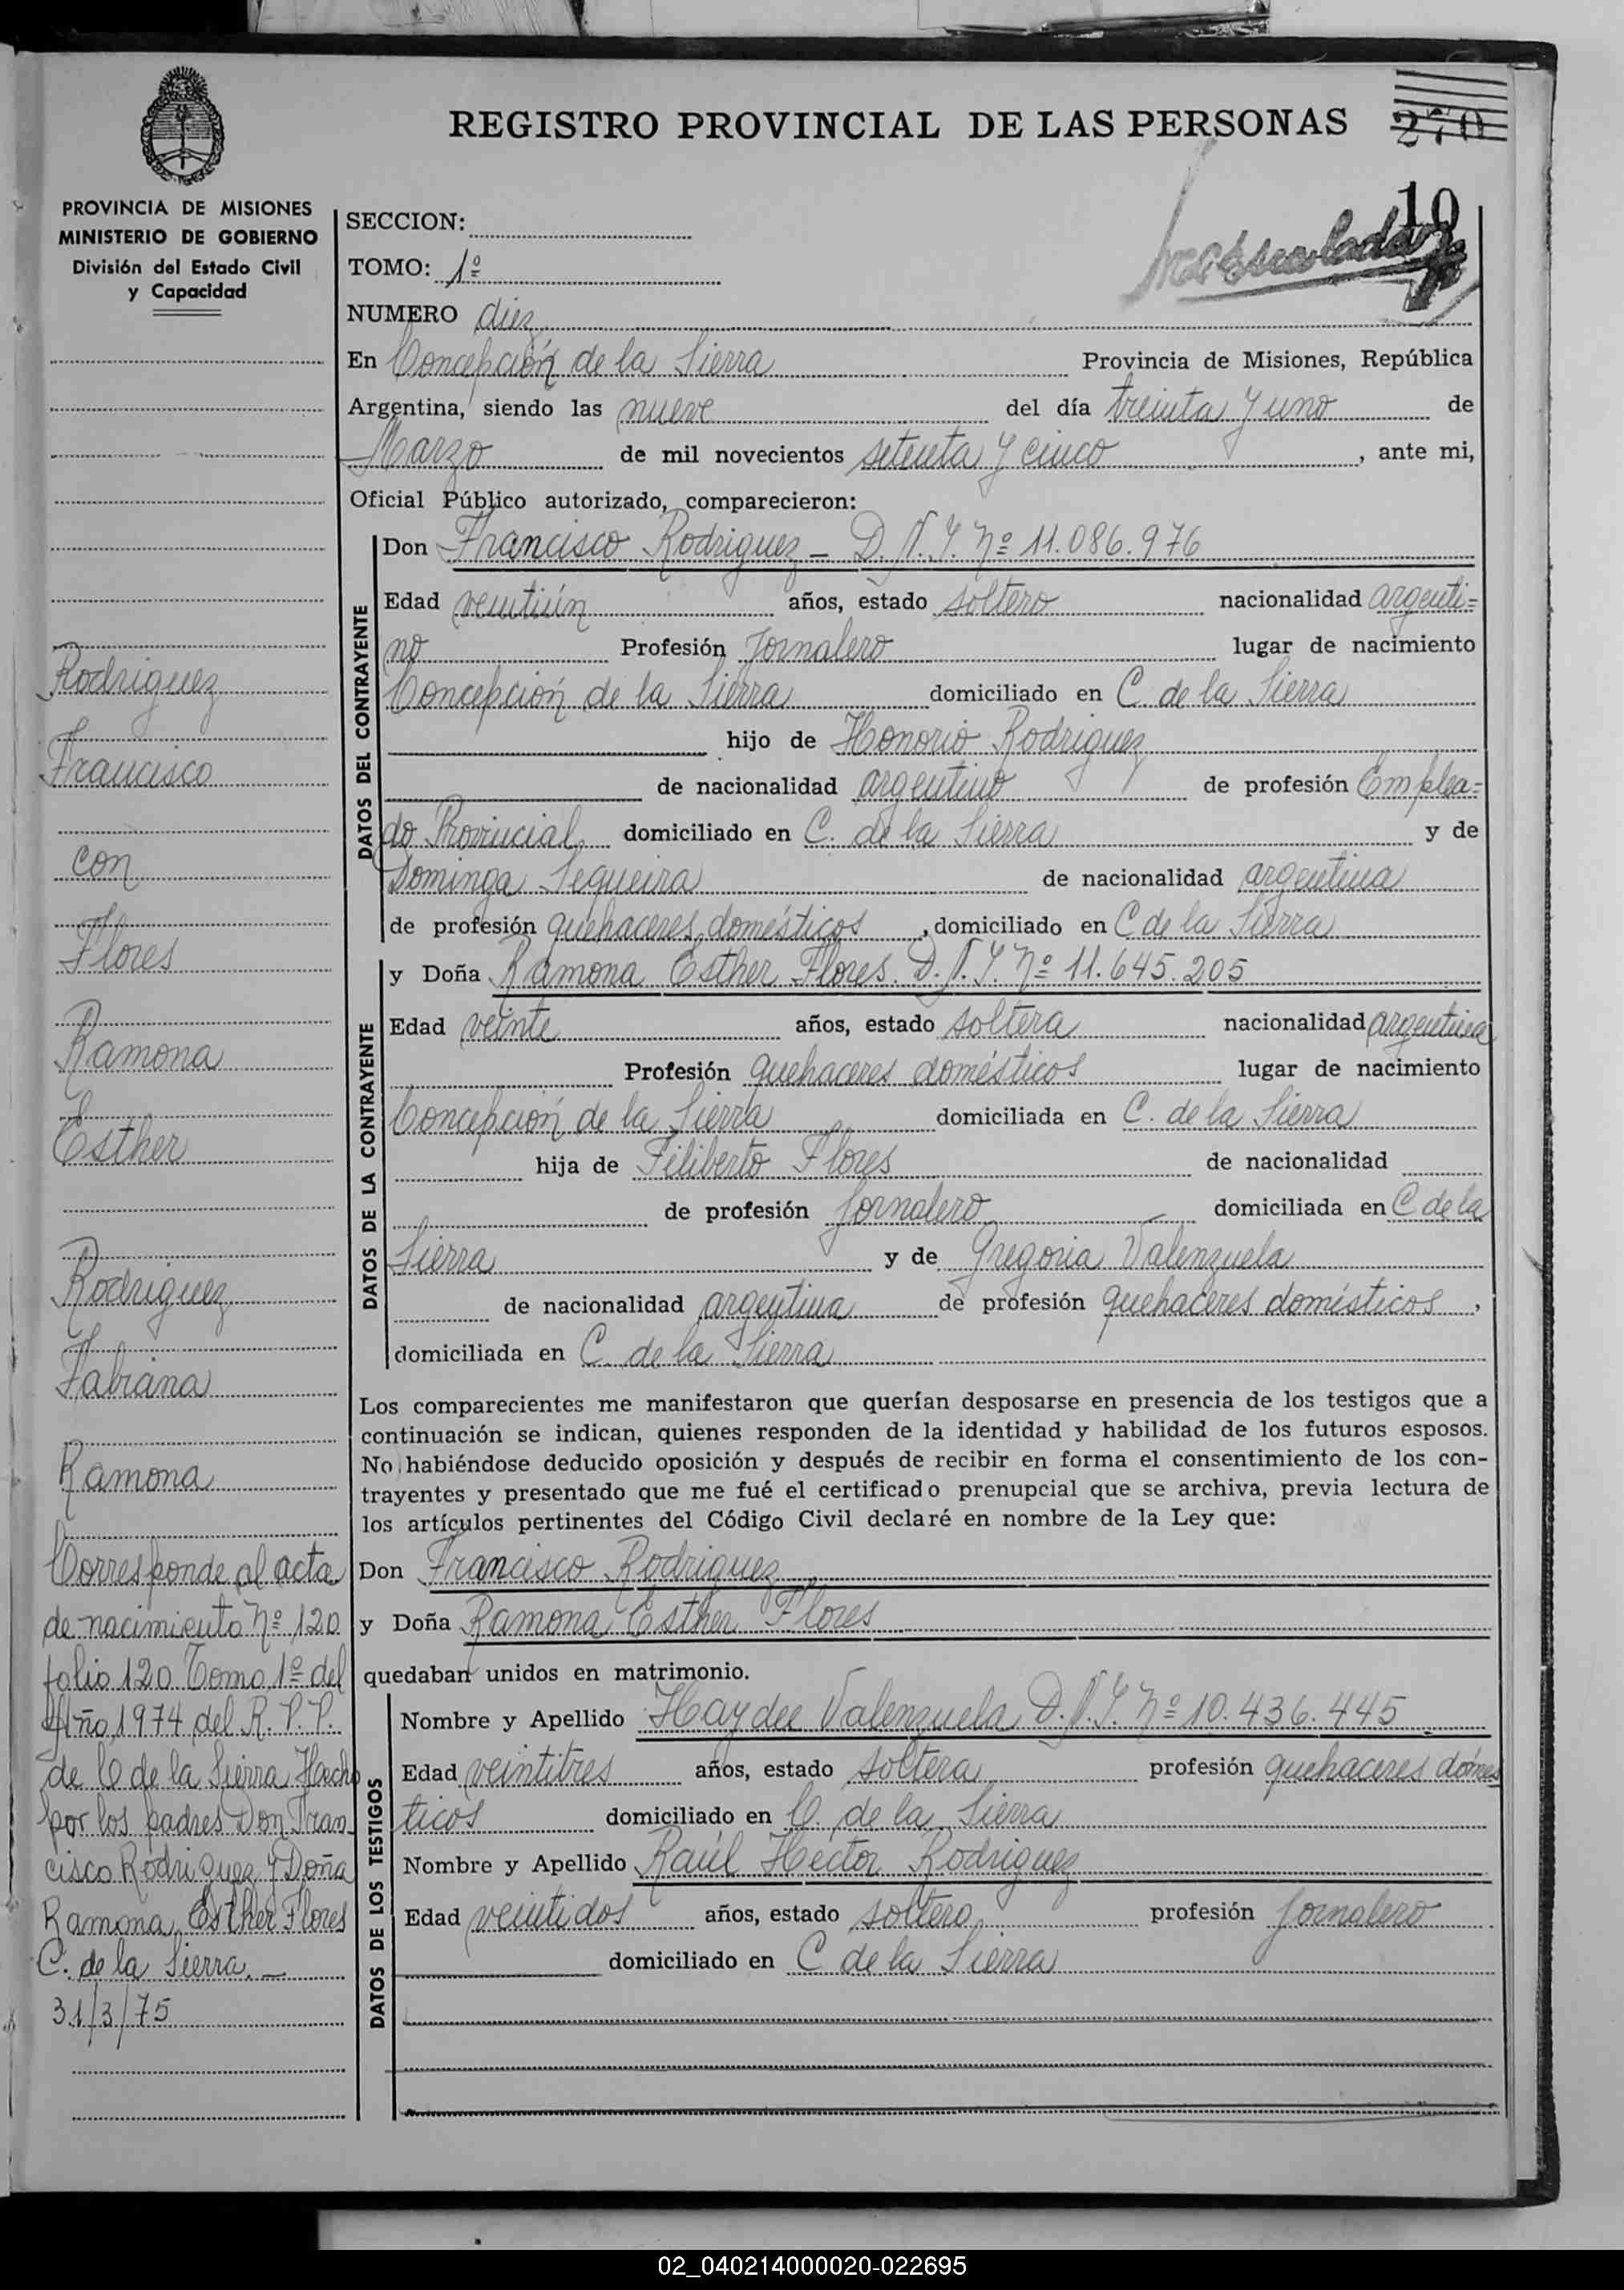 REGISTRO PROVINCIAL DE LAS PERSONAS
270
10
PROVINCIA DE MISIONES
MINISTERIO DE GOBIERNO
División del Estado Civil
y Capacidad
Rodriguez
Francisco
con
Flores
Ramona
Esther
Rodriguez
Fabiana
Ramona
Corresponde al acta
de nacimiento Nº 120
folio 120 Tomo 1º del
Año 1974 del R. P. P.
de C de la Sierra
por los padres Don Fran
cisco Rodriguez y Doña
Ramona Esther Flores
C. de la Sierra. -
31/3/75
SECCION:
TOMO: 1º
NUMERO diez
En Concepción de la Sierra Provincia de Misiones, República
Argentina, siendo las nueve del día treinta y uno de
Marzo de mil novecientos setenta y cinco, ante mi,
Oficial Público autorizado, comparecieron:
DATOS DEL CONTRAYENTE
Don Francisco Rodriguez - D.N.I. Nº 11.086.976
Edad veintiún años, estado soltero nacionalidad argenti=
no Profesión Jornalero lugar de nacimiento
Concepción de la Sierra domiciliado en C. de la Sierra
hijo de Honorio Rodriguez
de nacionalidad argentino de profesión Emplea=
do Provincial domiciliado en C. de la Sierra y de
Dominga Sequeira de nacionalidad argentina
de profesión quehaceres domésticos, domiciliado en C de la Sierra
DATOS DE LA CONTRAYENTE
y Doña Ramona Esther Flores. D.N.I. Nº 11.645.205
Edad veinte años, estado soltera nacionalidad argentina
Profesión quehaceres domésticos lugar de nacimiento
Concepción de la Sierra domiciliada en C. de la Sierra
hija de Filiberto Flores de nacionalidad
de profesión Jornalero domiciliada en C de la
Sierra y de Gregoria Valenzuela
de nacionalidad argentina de profesión quehaceres domésticos,
domiciliada en C. de la Sierra
Los comparecientes me manifestaron que querían desposarse en presencia de los testigos que a
continuación se indican, quienes responden de la identidad y habilidad de los futuros esposos.
No habiéndose deducido oposición y después de recibir en forma el consentimiento de los con-
trayentes y presentado que me fué el certificado prenupcial que se archiva, previa lectura de
los artículos pertinentes del Código Civil declaré en nombre de la Ley que:
Don Francisco Rodriguez
y Doña Ramona Esther Flores
quedaban unidos en matrimonio.
DATOS DE LOS TESTIGOS
Nombre y Apellido Haydee Valenzuela D.N.I. Nº 10.436.445
Edad veintitres años, estado soltera profesión quehaceres domés
ticos domiciliado en C. de la Sierra
Nombre y Apellido Raúl Hector Rodriguez
Edad veintidos años, estado soltero profesión Jornalero
domiciliado en C de la Sierra
02_040214000020-022695